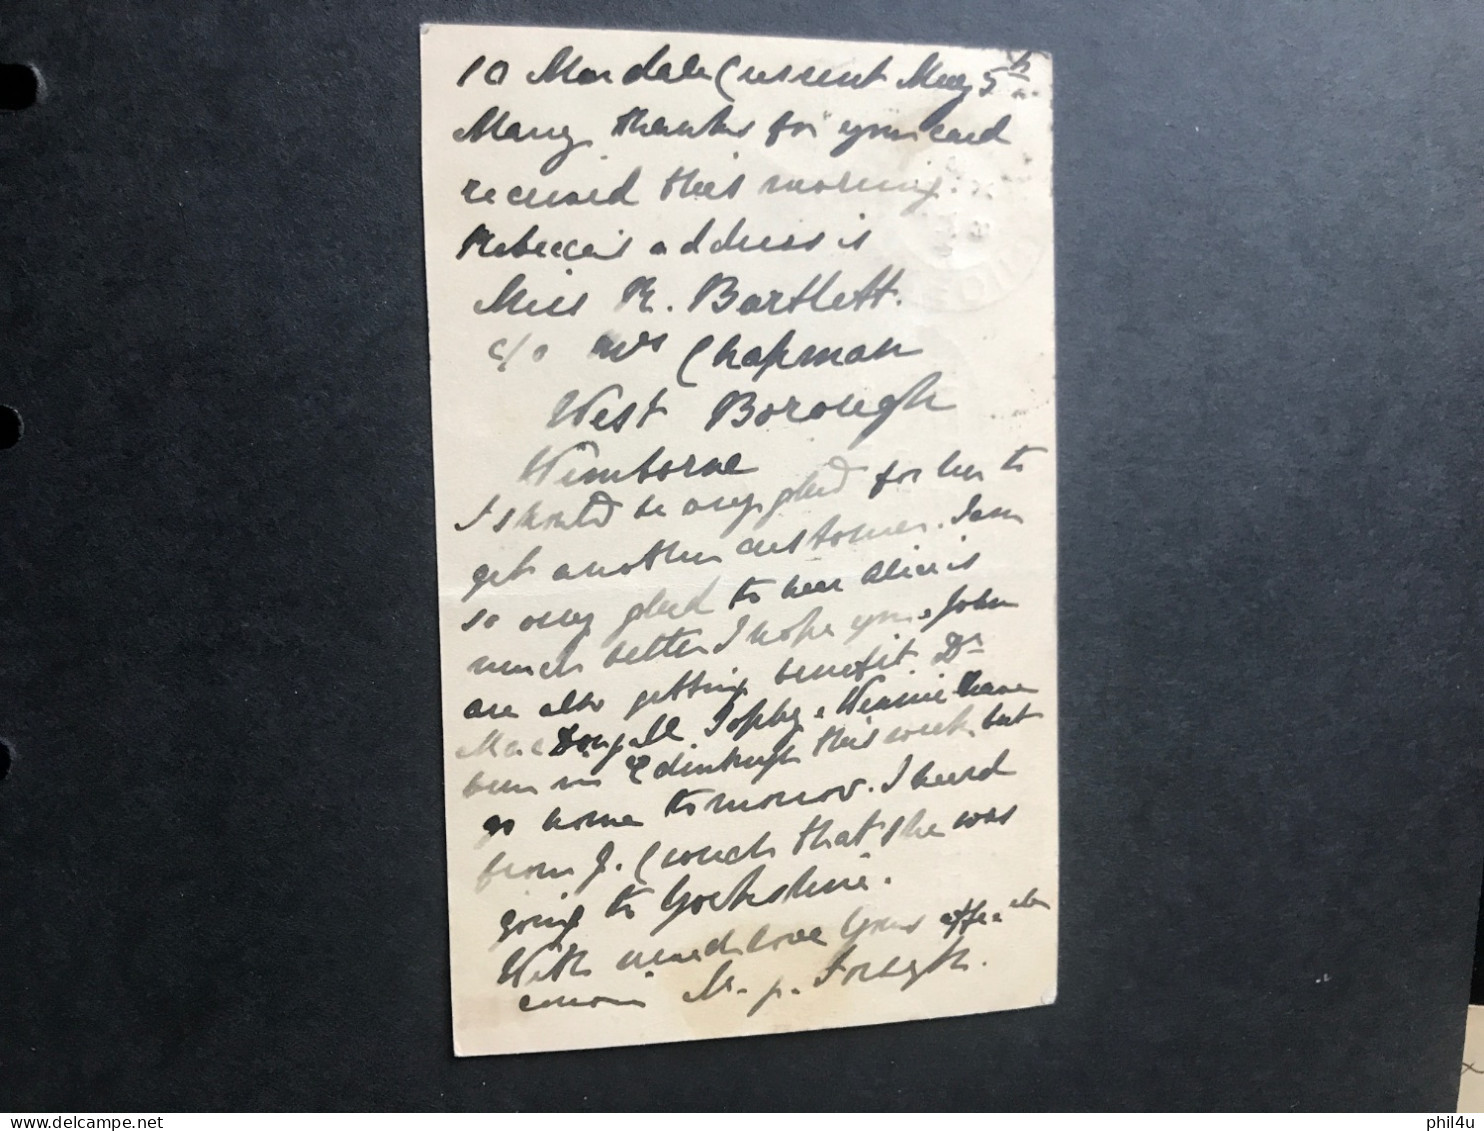 10 Mardale Crescent May 5th
Many thanks for your card
received this morning.
Rebecca's address is
Miss R. Bartlett.
c/o Mrs Chapman
West Borough
Wimborne
I should be very glad for her to
get another customer. I am
so very glad to hear Alice is
much better I hope you & John
are also getting benefit. Dr
MacDougall Sophy & Winnie have
been in Edinburgh this week but
go home tomorrow. I heard
from J. Couch that she was
going to Yorkshire.
With much love Yours affecate
cousin M. p. Forsyth.
phil4u